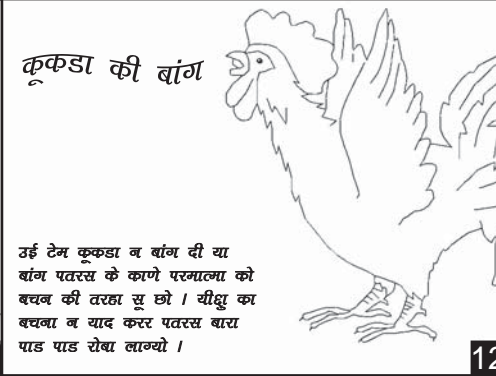 कूकडा की बांग
उई टेम कूकडा न बांग दी या
बांग पतरस के काणे परमात्मा को
बचन की तरहा सू छो । यीक्षु का
बचना न याद करर पतरस बारा
पाड पाड रोबा लाग्यो ।
12